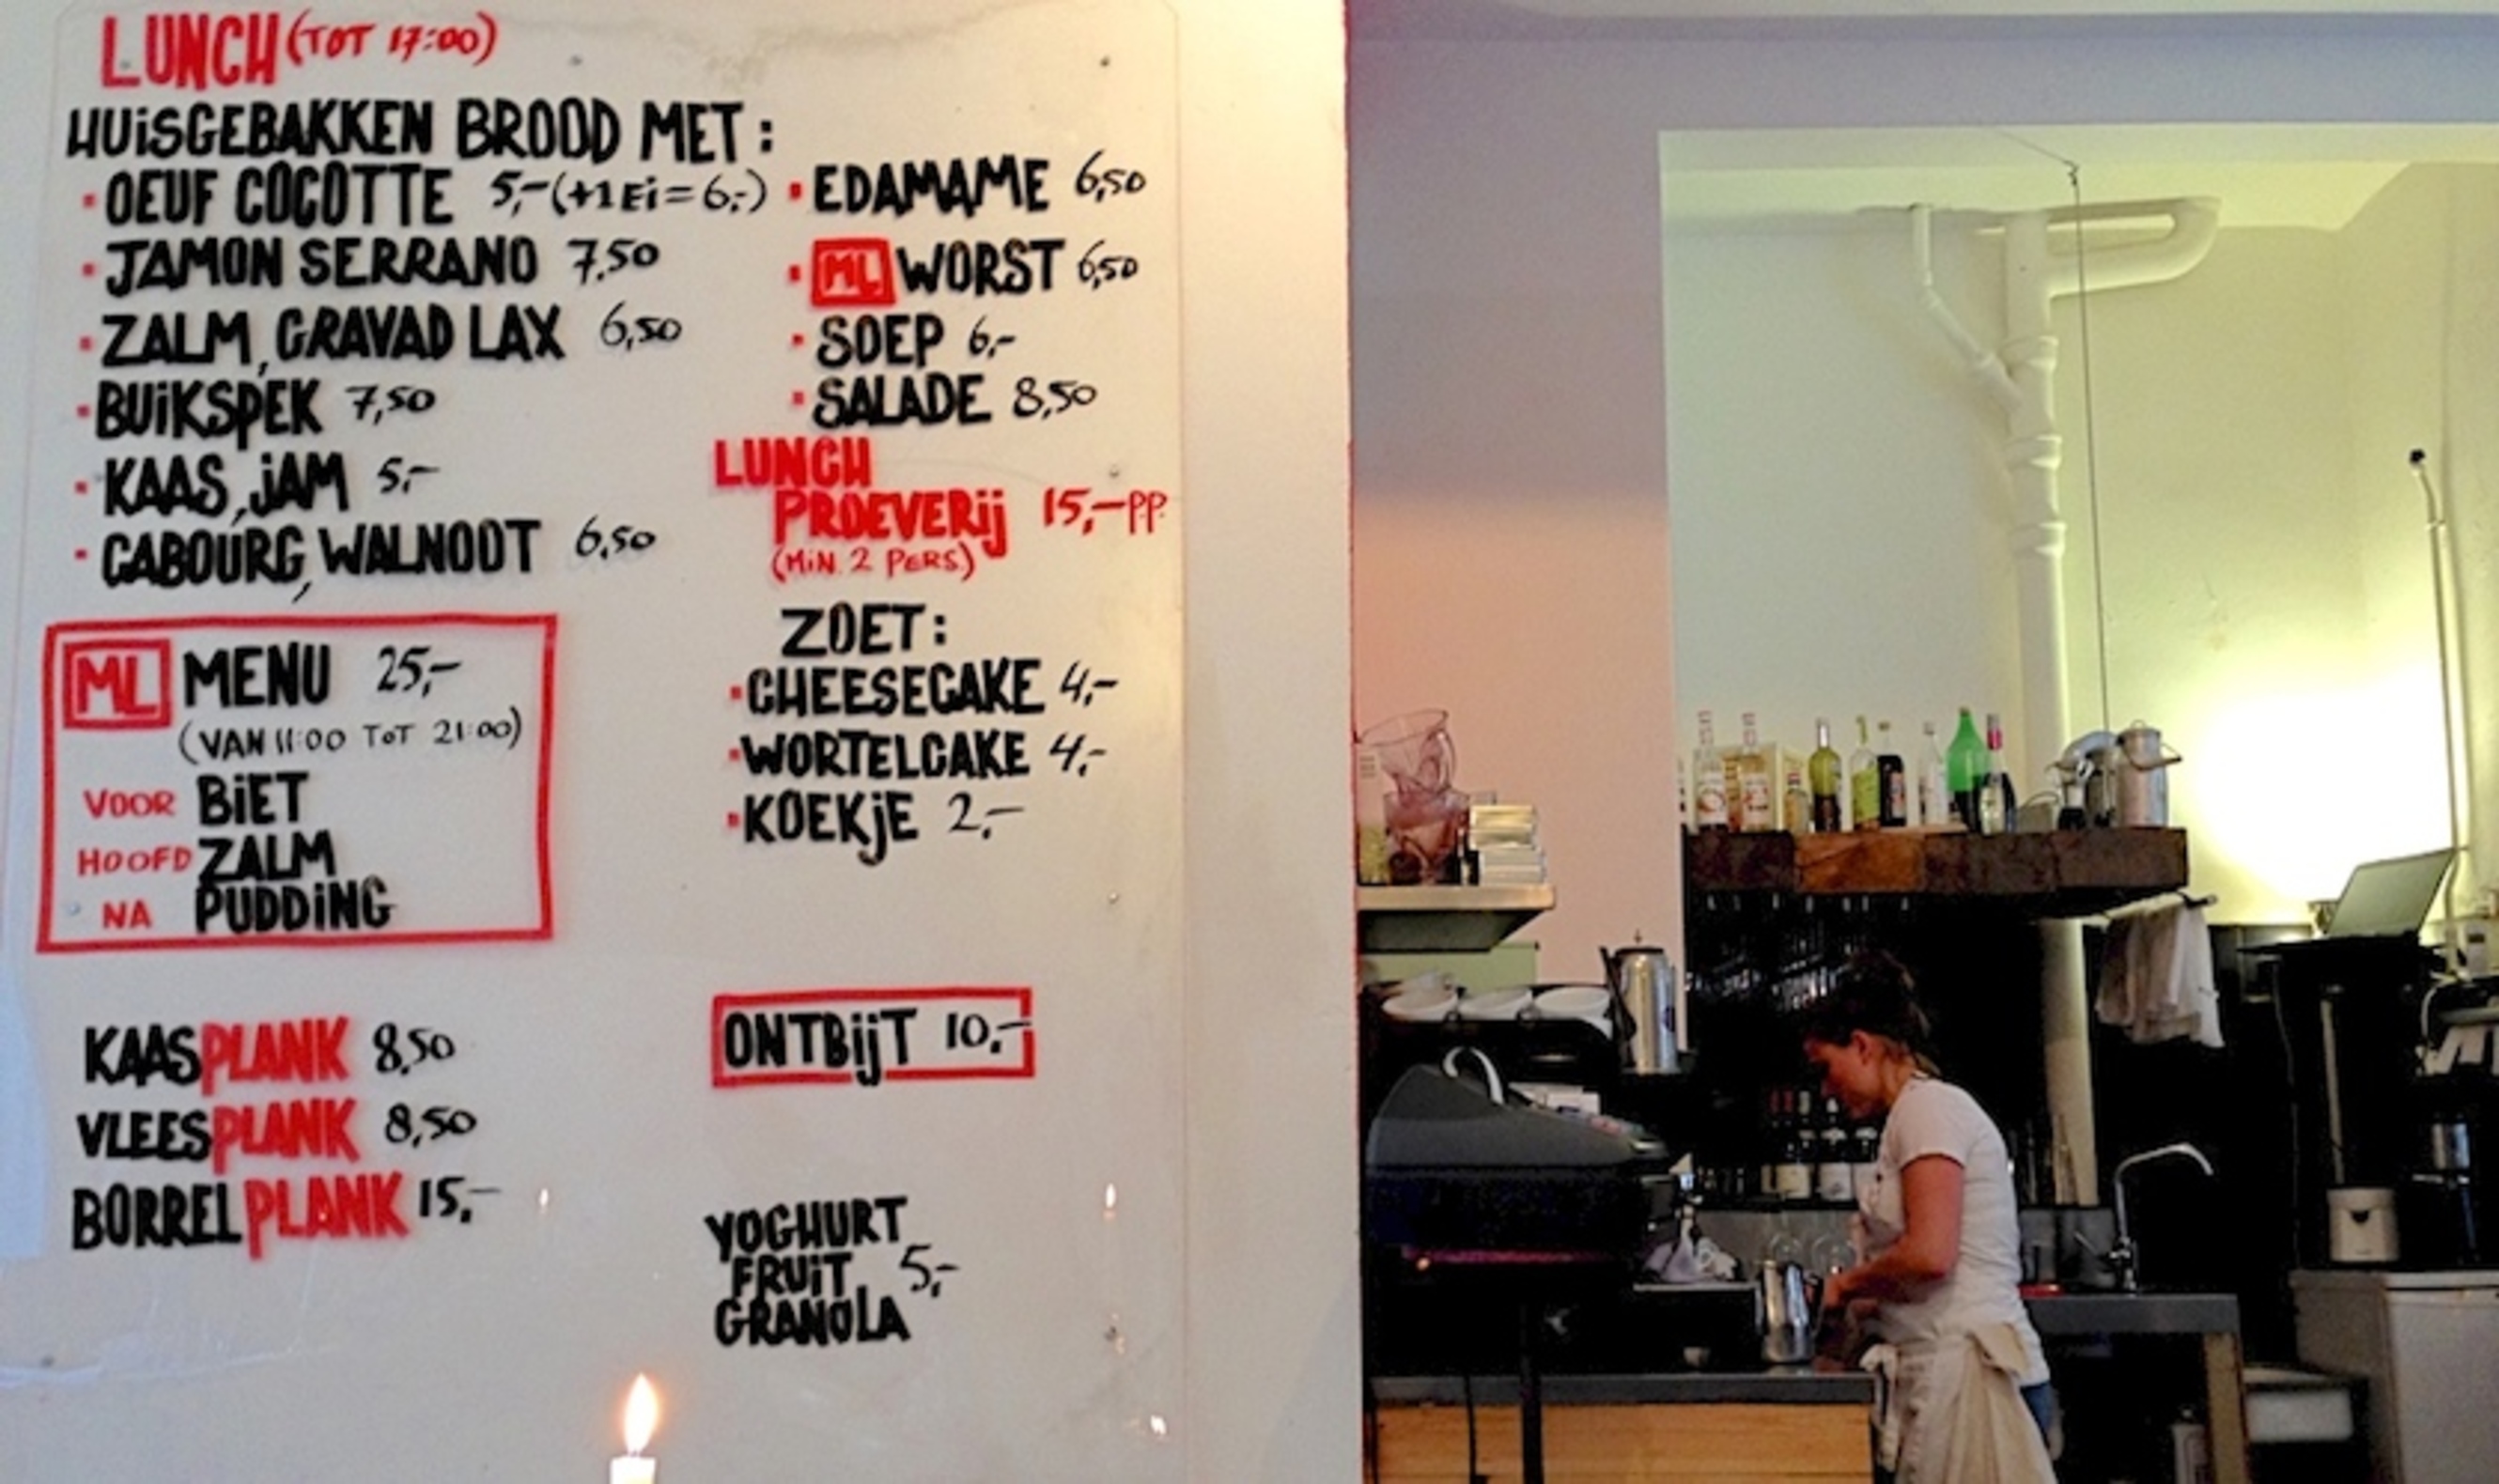 LUNCH (TOT 17:00)
HUiSGEBAKKEN BROOD MET:
· OEUF COCOTTE 5,- (+1 Ei = 6,-)
· JAMON SERRANO 7,50
· ZALM, GRAVAD LAX 6,50
· BUiKSPEK 7,50
· KAAS, jAM 5,-
· CABOURG, WALNOOT 6,50
· EDAMAME 6,50
· ML WORST 6,50
· SOEP 6,-
· SALADE 8,50
LUNCH
PROEVERij 15,- P.P.
(MiN. 2 PERS.)
ZOET:
· CHEESECAKE 4,-
· WORTELCAKE 4,-
· KOEKjE 2,-
ML MENU 25,-
(VAN 11:00 TOT 21:00)
VOOR BiET
HOOFD ZALM
NA PUDDiNG
KAASPLANK 8,50
VLEESPLANK 8,50
BORRELPLANK 15,-
ONTBijT 10,-
YOGHURT
FRUiT 5,-
GRANOLA